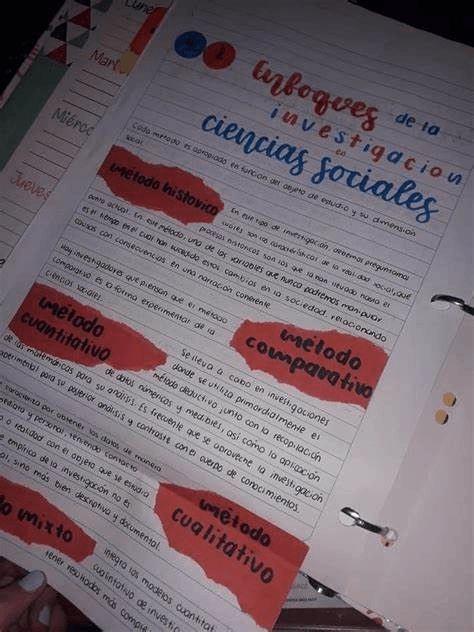 Lune
Mart
Miérco
Jueves
Enfoques de la
investigacion
en
ciencias sociales
Cada método es apropiado en función del objeto de estudio y su dimensión
social.
método historico
En este tipo de investigación debemos preguntarnos
cuales son las características de la realidad social, que
procesos historicos son los que la han llevado hasta el
punto actual. En este método, una de las variables que nunca podremos manipular
es el tiempo en el cual han sucedido estos cambios en la sociedad, relacionando
causas con consecuencias en una narración coherente.
Hay investigadores que piensan que el método
comparativo es la forma experimental de la
ciencias sociales.
método
comparativo
método
cuantitativo
Se lleva a cabo en investigaciones
donde se utiliza primordialmente el
método deductivo junto con la recopilación
de datos numéricos y medibles, así cómo la aplicación
de las matemáticas para su análisis. Es frecuente que se aproveche la investigación
experimental para su posterior análisis y contraste con el cuerpo de conocimientos.
caracteriza por obtener los datos de manera
mediata y personal, teniendo contacto
o realidad con el objeto que se estudia
e empírica de la investigación no es
al, sino más bien descriptiva y documental.
método
cualitativo
do mixto
integra los modelos cuantitat
cualitativo de investiga
tener resultados más comple